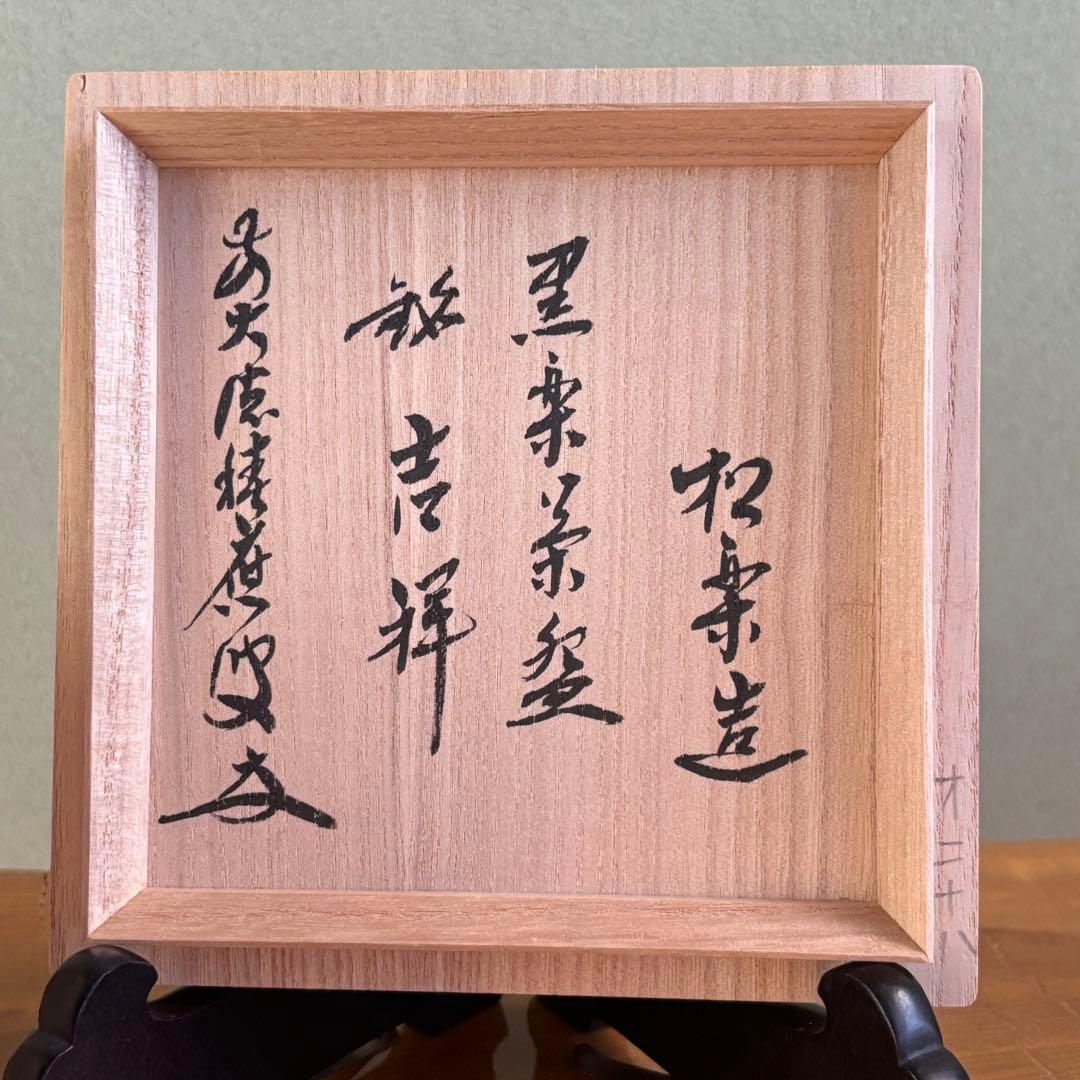 松楽造
黒楽茶盌
銘 吉祥
前大徳積應叟
オ二十八